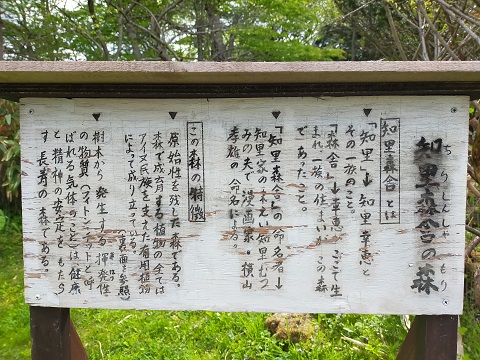 知里森舎の森
ちりしんしゃ もり
知里森舎とは
▼「知里」→知里幸恵と
その一族のこと。
「森舎」→幸恵はここで生
まれ一族の住まいがこの森
であったこと。
▼「知里森舎」の命名者→
知里家の末えい知里むつ
みの夫で漫画家・横山
孝雄の命名による。
この森の特徴
▼原始性を残した森である。
森で成育する植物の全ては
アイヌ民族を支えた有用植物
によって成り立っている。(裏面を参照)
▼樹木から発生する揮発性
の物質(フィトンチッドと呼
ばれる気体のこと)は健康
と精神の安定をもたら
す長寿の森である。